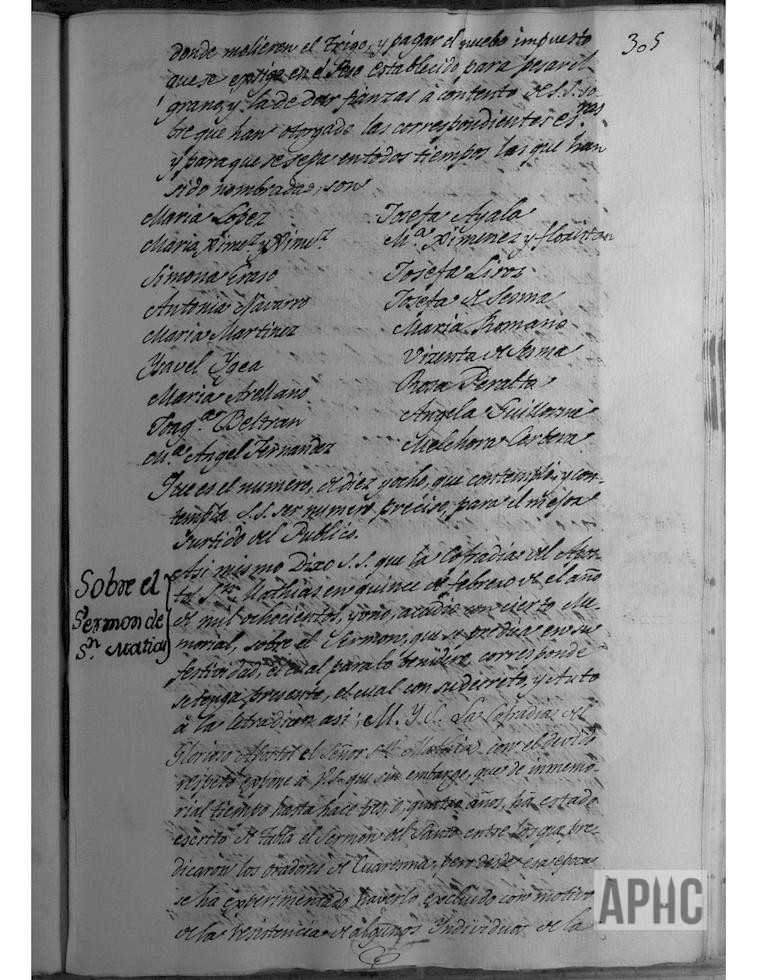 305
donde molieren el trigo, y pagar el nuebo impuesto
que se exsige en el Peso establecido, para pesar el
grano, y la de dar fianzas à contento de S.S. so-
bre que han otorgado las correspondientes es.ras
y para que se sepa en todos tiempos las que han
sido nombradas, son
Maria Lopez Josefa Ayala
Maria Ximz y Ximz M.a Ximenez y floristan
Simona Eraso Josefa Liroz
Antonia Navarro Josefa de Sesma
Maria Martinez Maria Romano
Ysavel Ygea Vizenta de Sesma
Maria Arellano Rosa Peralta
Joaq.a Beltran Angela Guillorme
M.a Angel Fernandez Melchora Cerbera
Que es el numero, de diez y ocho, que contempló, y con-
templa S.S. ser numero preciso, para el mejor
surtido del Publico.
Sobre el
Sermon de
Sn. Matias
Asi mismo Dixo S.S. que la Cofradia del Apos-
tol Sn. Mathias en quince de febrero de el año
de mil ochocientos, y ono, acudio con cierto Me-
morial, sobre el Sermon, que se predica en su
festividad, el cual para lo benidero corresponde
se tenga presente, el cual con su decreto, y Auto
à la letra dicen asi: M. Y. S. La Cofradia del
Glorioso Apostol el Señor Sn. Mathias con el devido
respeto expone à V.S. que sin embargo, que de inmemo-
rial tiempo hasta hace tres, o, quatro años, ha estado
escrito de tabla el Sermon del Santo entre los que pre-
dicaron los oradores de Cuaresma, pero desde esa epoca
se ha experimentado haverlo excluido con motivo
de la resistencia de algunos Individuos de la
APHC